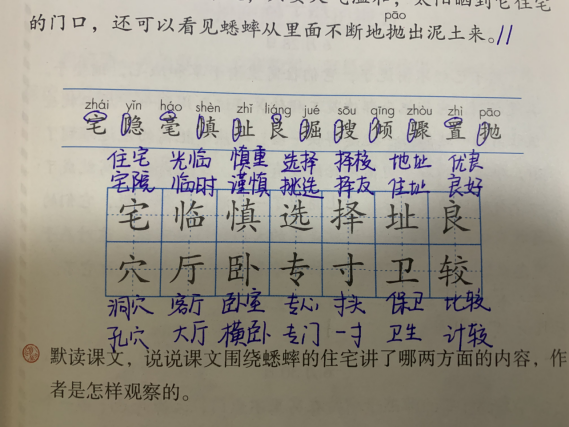 太阳晒到它住宅
pāo
的门口，还可以看见蟋蟀从里面不断地抛出泥土来。11
zhái yǐn háo shèn zhǐ liáng jué sōu qīng zhòu zhì pāo
宅 隐 毫 慎 址 良 掘 搜 倾 骤 置 抛
住宅 光临 慎重 选择 择校 地址 优良
宅院 临时 谨慎 挑选 择友 住址 良好
宅 临 慎 选 择 址 良
穴 厅 卧 专 寸 卫 较
洞穴 客厅 卧室 专心 寸头 保卫 比较
孔穴 大厅 横卧 专门 一寸 卫生 计较
默读课文，说说课文围绕蟋蟀的住宅讲了哪两方面的内容，作
者是怎样观察的。